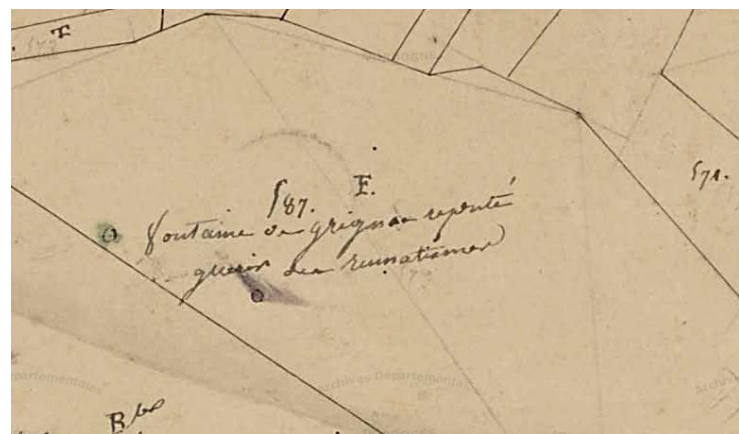 T.
587.
F.
571.
fontaine de grignac reputé
guerir des rumatismes
Archives Départementales
B bis